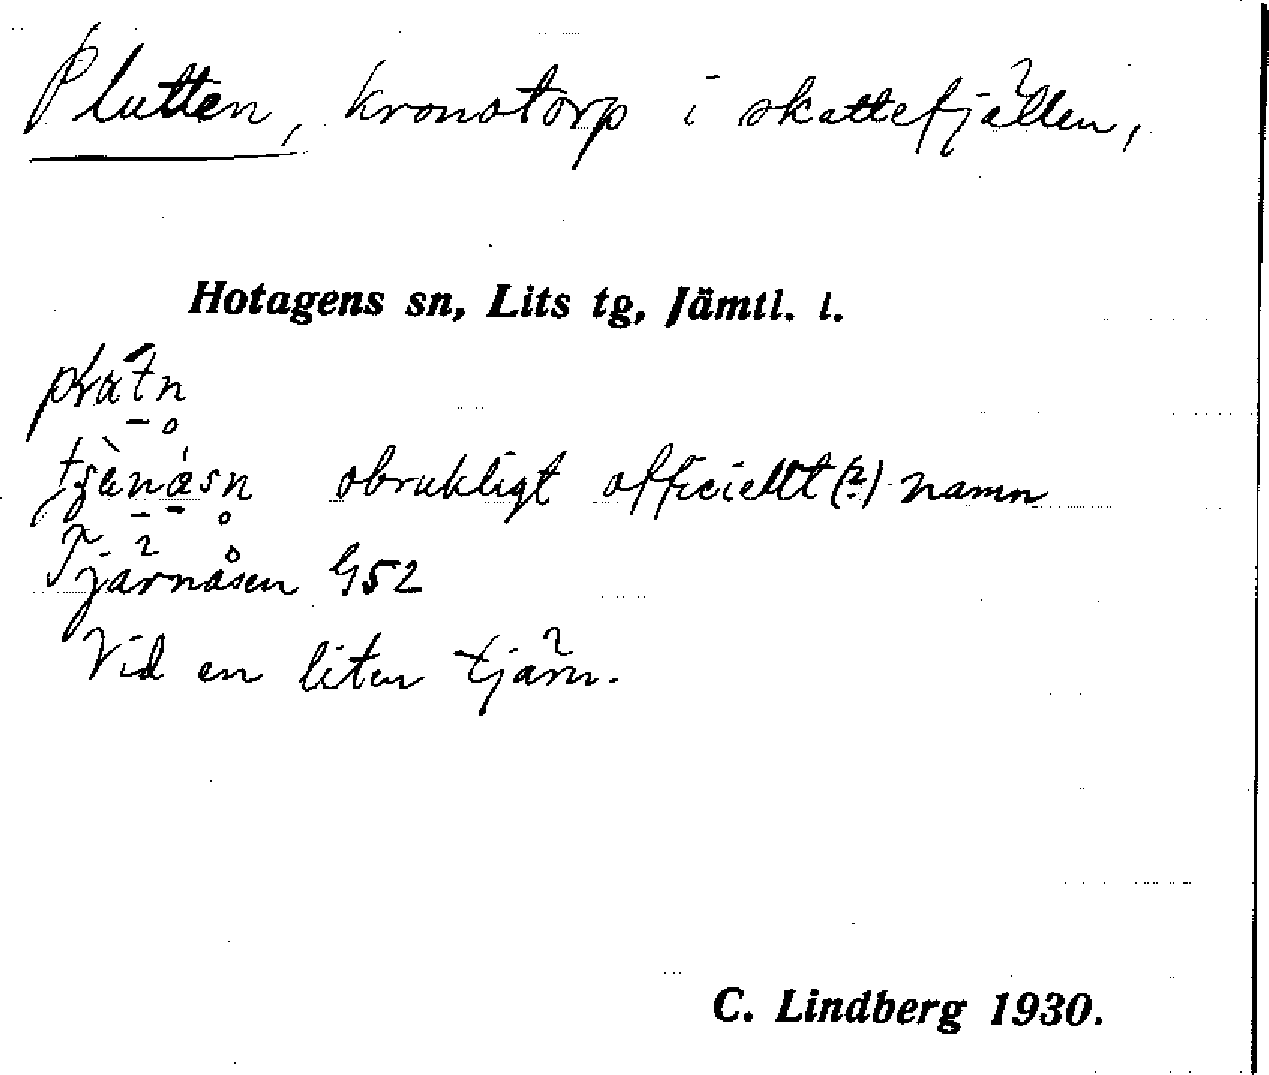 Plutten, kronotorp i skattefjällen,
Hotagens sn, Lits tg, Jämtl. l.
obrukligt officiellt (?) namn
Tjärnåsen G52
Vid en liten tjärn.
C. Lindberg 1930.